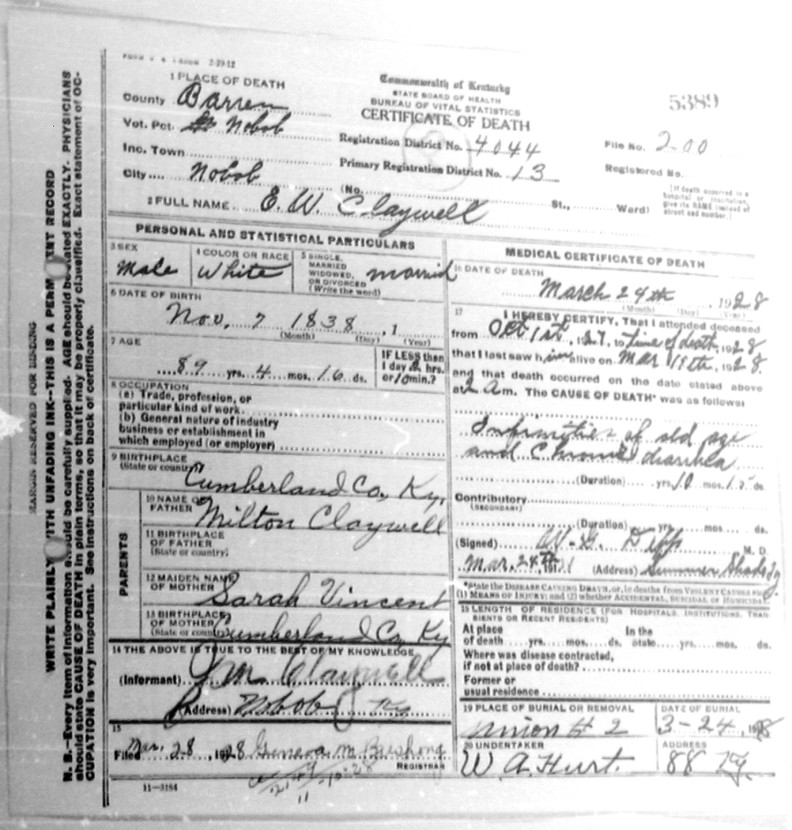 Commonwealth of Kentucky
STATE BOARD OF HEALTH
BUREAU OF VITAL STATISTICS
CERTIFICATE OF DEATH
5389
1 PLACE OF DEATH
County Barren
Vot. Pct. Nobob
Inc. Town
City Nobob
Registration District No. 4044
Primary Registration District No. 13
File No. 200
Registered No.
(No. St., Ward)
(If death occurred in a hospital or institution, give its NAME instead of street and number)
2 FULL NAME E. W. Claywell
PERSONAL AND STATISTICAL PARTICULARS
3 SEX Male
4 COLOR OR RACE White
5 SINGLE, MARRIED WIDOWED, OR DIVORCED (Write the word) married
6 DATE OF BIRTH
Nov. 7 1838, 1
(Month) (Day) (Year)
7 AGE
89 yrs. 4 mos. 16 ds.
IF LESS than 1 day hrs. or min.?
8 OCCUPATION
(a) Trade, profession, or
particular kind of work
(b) General nature of industry
business or establishment in
which employed (or employer)
9 BIRTHPLACE
(State or country)
Cumberland Co., Ky,
PARENTS
10 NAME OF FATHER Milton Claywell
11 BIRTHPLACE
OF FATHER
(State or country)
12 MAIDEN NAME
OF MOTHER Sarah Vincent
13 BIRTHPLACE
OF MOTHER Cumberland Co, Ky
14 THE ABOVE IS TRUE TO THE BEST OF MY KNOWLEDGE
(Informant) Claywell
(Address) Nobob Ky
15
Filed Mar. 28, 1928 Geneva M
REGISTRAR
11-3184
MEDICAL CERTIFICATE OF DEATH
16 DATE OF DEATH
March 24th, 1928
(Month) (Day) (Year)
17 I HEREBY CERTIFY, That I attended deceased
from Oct 1st, to time of death, 1928
that I last saw him alive on Mar 19th, 1928
and that death occurred on the date stated above
at 2 a m. The CAUSE OF DEATH* was as follows:
Infirmities of old age
and Chronic diarrhea
(Duration) yrs. 10 mos. 15 ds.
Contributory
(SECONDARY)
(Duration) yrs. mos. ds.
(Signed) M. D.
Mar. 24th, 19 (Address) Summer Shade Ky.
*State the DISEASE CAUSING DEATH, or, in deaths from VIOLENT CAUSES state
(1) MEANS OF INJURY; and (2) whether ACCIDENTAL, SUICIDAL or HOMICIDAL
18 LENGTH OF RESIDENCE (FOR HOSPITALS, INSTITUTIONS, TRANSIENTS OR RECENT RESIDENTS)
At place of death yrs. mos. ds. In the State yrs. mos. ds.
Where was disease contracted,
if not at place of death?
Former or
usual residence
19 PLACE OF BURIAL OR REMOVAL
Union # 2
DATE OF BURIAL
3-24, 1928
20 UNDERTAKER
W A Hurt.
ADDRESS
88 Ky.
MARGIN RESERVED FOR BINDING
WRITE PLAINLY WITH UNFADING INK—THIS IS A PERMANENT RECORD
N. B.—Every item of information should be carefully supplied. AGE should be stated EXACTLY. PHYSICIANS
should state CAUSE OF DEATH in plain terms, so that it may be properly classified. Exact statement of OC-
CUPATION is very important. See instructions on back of certificate.